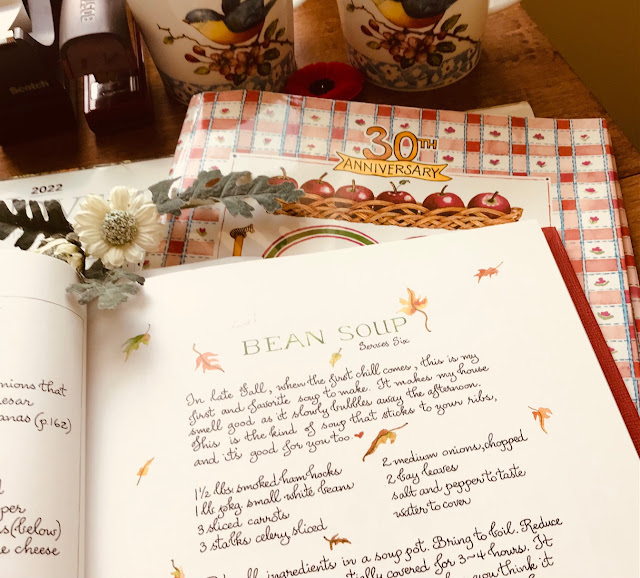 Scotch
2022
30TH
ANNIVERSARY
onions that
esar
anas (p.162)
per
s (below)
e cheese
BEAN SOUP
Serves Six
In late Fall, when the first chill comes, this is my
first and favorite soup to make. It makes my house
smell good as it slowly bubbles away the afternoon.
This is the kind of soup that sticks to your ribs,
and it's good for you too. ♥
1½ lbs. smoked ham hocks
1 lb. pkg. small white beans
3 sliced carrots
3 stalks celery, sliced
2 medium onions, chopped
2 bay leaves
salt and pepper to taste
water to cover
all ingredients in a soup pot. Bring to boil. Reduce
tially covered for 3~4 hours. It
you think it